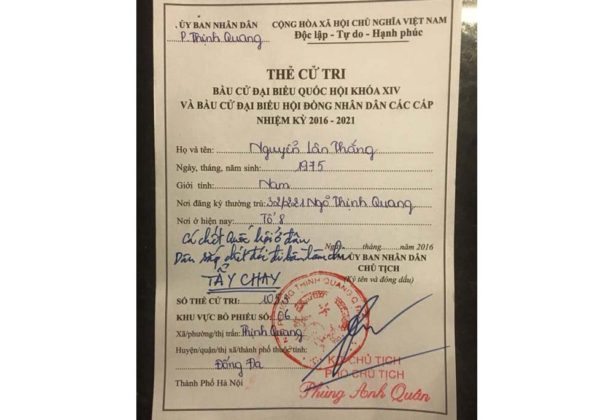 ỦY BAN NHÂN DÂN
P. Thịnh Quang
CỘNG HÒA XÃ HỘI CHỦ NGHĨA VIỆT NAM
Độc lập - Tự do - Hạnh phúc
THẺ CỬ TRI
BẦU CỬ ĐẠI BIỂU QUỐC HỘI KHÓA XIV
VÀ BẦU CỬ ĐẠI BIỂU HỘI ĐỒNG NHÂN DÂN CÁC CẤP
NHIỆM KỲ 2016 - 2021
Họ và tên: Nguyễn Lân Thắng
Ngày, tháng, năm sinh: 1975
Giới tính: Nam
Nơi đăng ký thường trú: 32/221 Ngõ Thịnh Quang
Nơi ở hiện nay: Tổ 8
Cá chết Quốc hội ở đâu
Dân sắp chết đói đi bầu làm
TẨY CHAY
tháng năm 2016
ỦY BAN NHÂN DÂN
CHỦ TỊCH
(Ký tên và đóng dấu)
SỐ THẺ CỬ TRI:
KHU VỰC BỎ PHIẾU SỐ: 06
Xã/phường/thị trấn: Thịnh Quang
Huyện/quận/thị xã/thành phố thuộc tỉnh:
Đống Đa
Thành Phố Hà Nội
PHƯỜNG THỊNH QUANG
KT. CHỦ TỊCH
PHÓ CHỦ TỊCH
Phùng Anh Quân